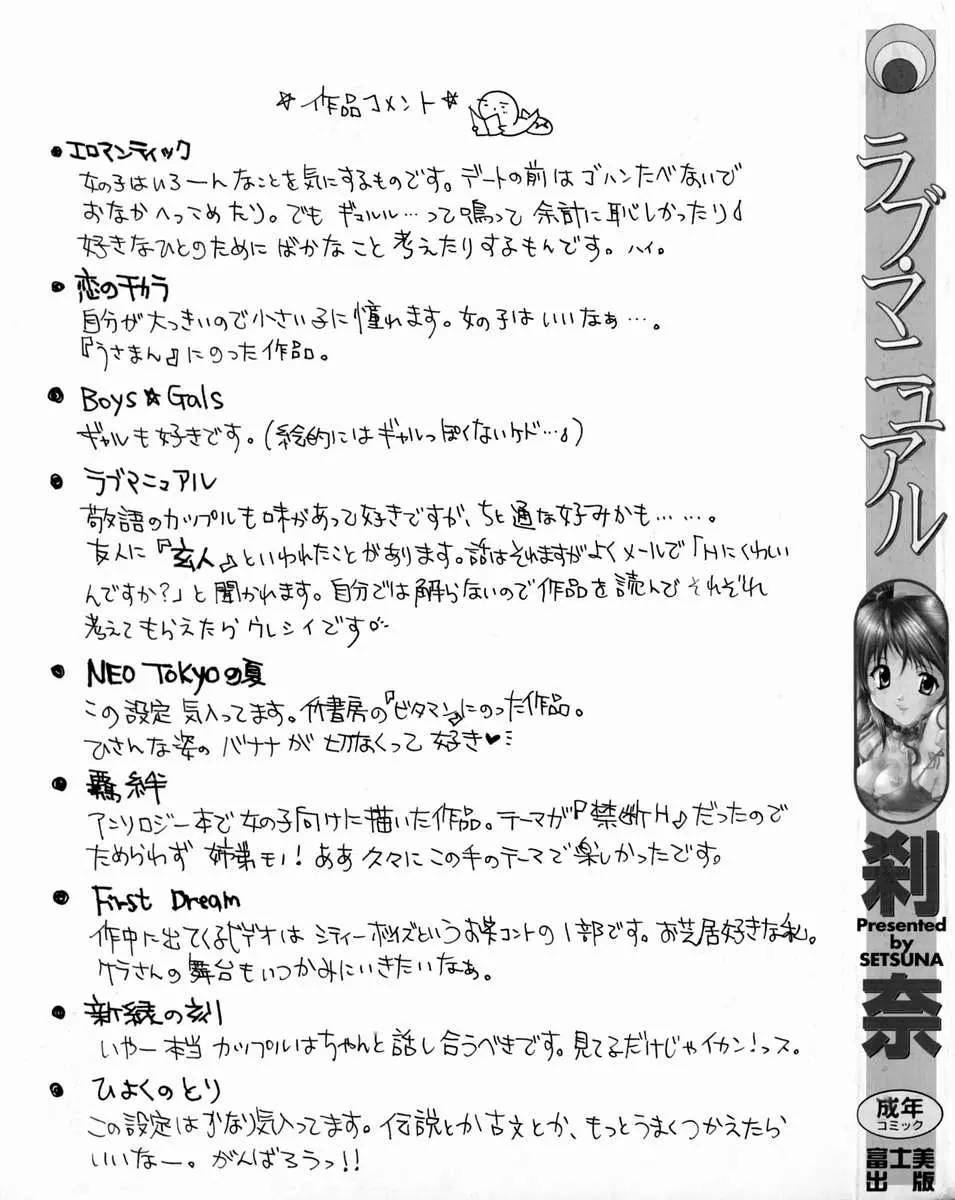 ☆作品コメント☆
●エロマンティック
女の子はいろーんなことを気にするものです。デートの前はゴハンたべないで
おなかへっこめたり。でもギュルル…って鳴って余計に恥しかったり♩
好きなひとのためにばかなこと考えたりするもんです。ハイ。
●恋のチカラ
自分が大っきいので小さい子に憧れます。女の子はいいなぁ…。
『うさまん』にのった作品。
●Boys☆Gals
ギャルも好きです。(絵的にはギャルっぽくないケド…♩)
●ラブマニュアル
敬語のカップルも味があって好きですが、ちと通な好みかも……。
友人に『玄人』といわれたことがあります。話はそれますがよくメールで「Hにくわしい
んですか?」と聞かれます。自分では解らないので作品を読んでそれぞれ
考えてもらえたらウレシイです
●NEO TOKYOの夏
この設定気入ってます。竹書房の『ビタマン』にのった作品。
ひさんな姿のバナナが切なくって好き♥
●羈絆
アンソロジー本で女の子向けに描いた作品。テーマが『禁断H』だったので
ためらわず姉弟モノ!ああ久々にこの手のテーマで楽しかったです。
●First Dream
作中に出てくるビデオはシティーボイズというお笑コントの1部です。お芝居好きな私。
ケラさんの舞台もいつかみにいきたいなぁ。
●新緑の刻
いやー本当カップルはちゃんと話し合うべきです。見てるだけじゃイカン!っス。
●ひよくのとり
この設定はかなり気入ってます。伝説とか古文とか、もっとうまくつかえたら
いいなー。がんばろうっ!!
ラブ・マニュアル
刹奈
Presented
by
SETSUNA
成年
コミック
富士美
出版